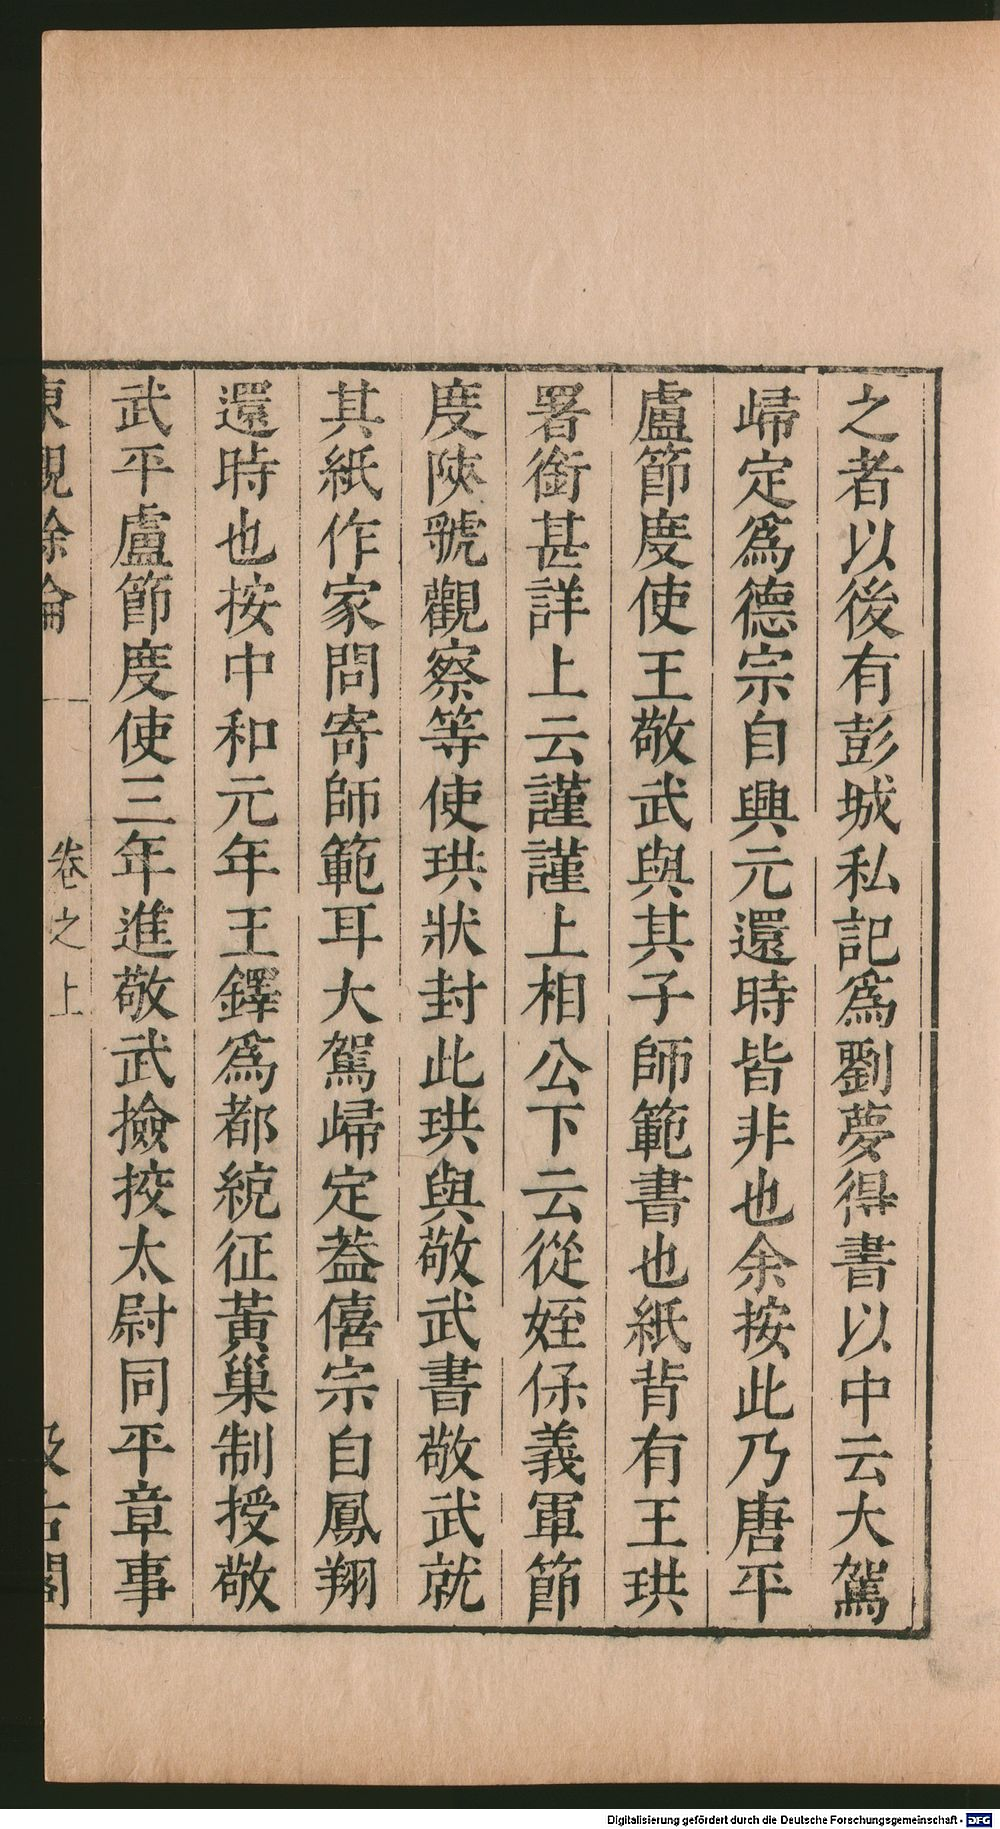 之者以後有彭城私記爲劉夢得書以中云大駕
歸定爲德宗自興元還時皆非也余按此乃唐平
盧節度使王敬武與其子師範書也紙背有王珙
署銜甚詳上云謹謹上相公下云從姪保義軍節
度陝虢觀察等使珙狀封此珙與敬武書敬武就
其紙作家問寄師範耳大駕歸定葢僖宗自鳳翔
還時也按中和元年王鐸爲都統征黃巢制授敬
武平盧節度使三年進敬武撿挍太尉同平章事
東觀餘論
卷之上
汲古閣
Digitalisierung gefördert durch die Deutsche Forschungsgemeinschaft - DFG